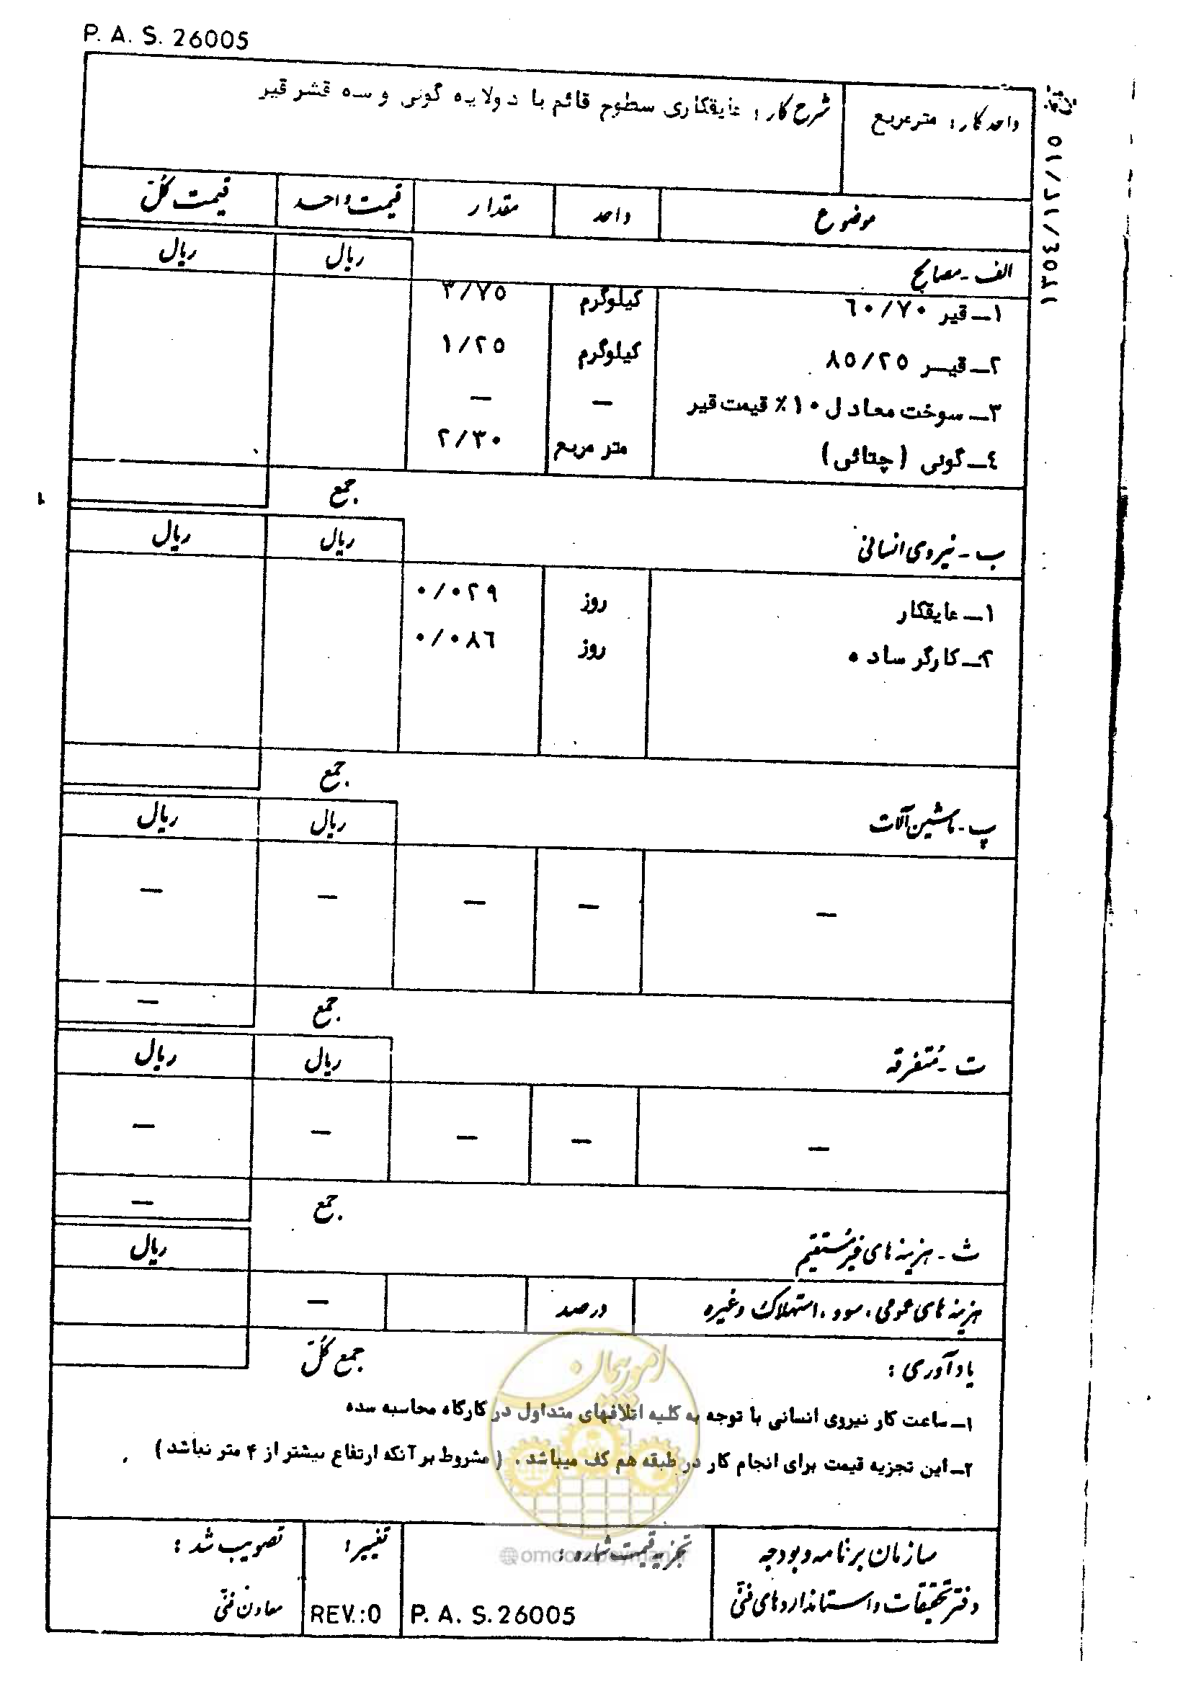 P. A. S. 26005
واحد کار : مترمربع
شرح کار : عایقکاری سطوح قائم با دولایه گونی و سه قشر قیر
موضوع واحد مقدار قیمت واحد قیمت کل
الف - مصالح ریال ریال
۱ـ قیر ۶۰/۷۰ کیلوگرم ۳/۷۵
۲ـ قیـر ۸۵/۲۵ کیلوگرم ۱/۲۵
۳ـ سوخت معادل ۱۰٪ قیمت قیر — —
٤ـ گونی (چتائی) متر مربع ۲/۳۰
جمع
ب - نیروی انسانی ریال ریال
۱ـ عایقکار روز ۰/۰۲۹
۲ـ کارگر ساده روز ۰/۰۸٦
جمع
پ - ماشین آلات ریال ریال
— — — — —
جمع —
ت - متفرقه ریال ریال
— — — — —
جمع —
ث - هزینه های غیرمستقیم ریال
هزینه های عمومی ، سود ، استهلاک وغیره درصد —
جمع کل
یادآوری :
۱ـ ساعت کار نیروی انسانی با توجه به کلیه اتلافهای متداول در کارگاه محاسبه شده
۲ـ این تجزیه قیمت برای انجام کار در طبقه هم کف میباشد . ( مشروط بر آنکه ارتفاع بیشتر از ۴ متر نباشد )
امور پیمان
@omoorepeyman.ir
سازمان برنامه و بودجه
دفتر تحقیقات و استانداردهای فنی
تجزیه قیمت شماره :
P. A. S. 26005
تغییر :
REV.:0
تصویب شد :
معاون فنی